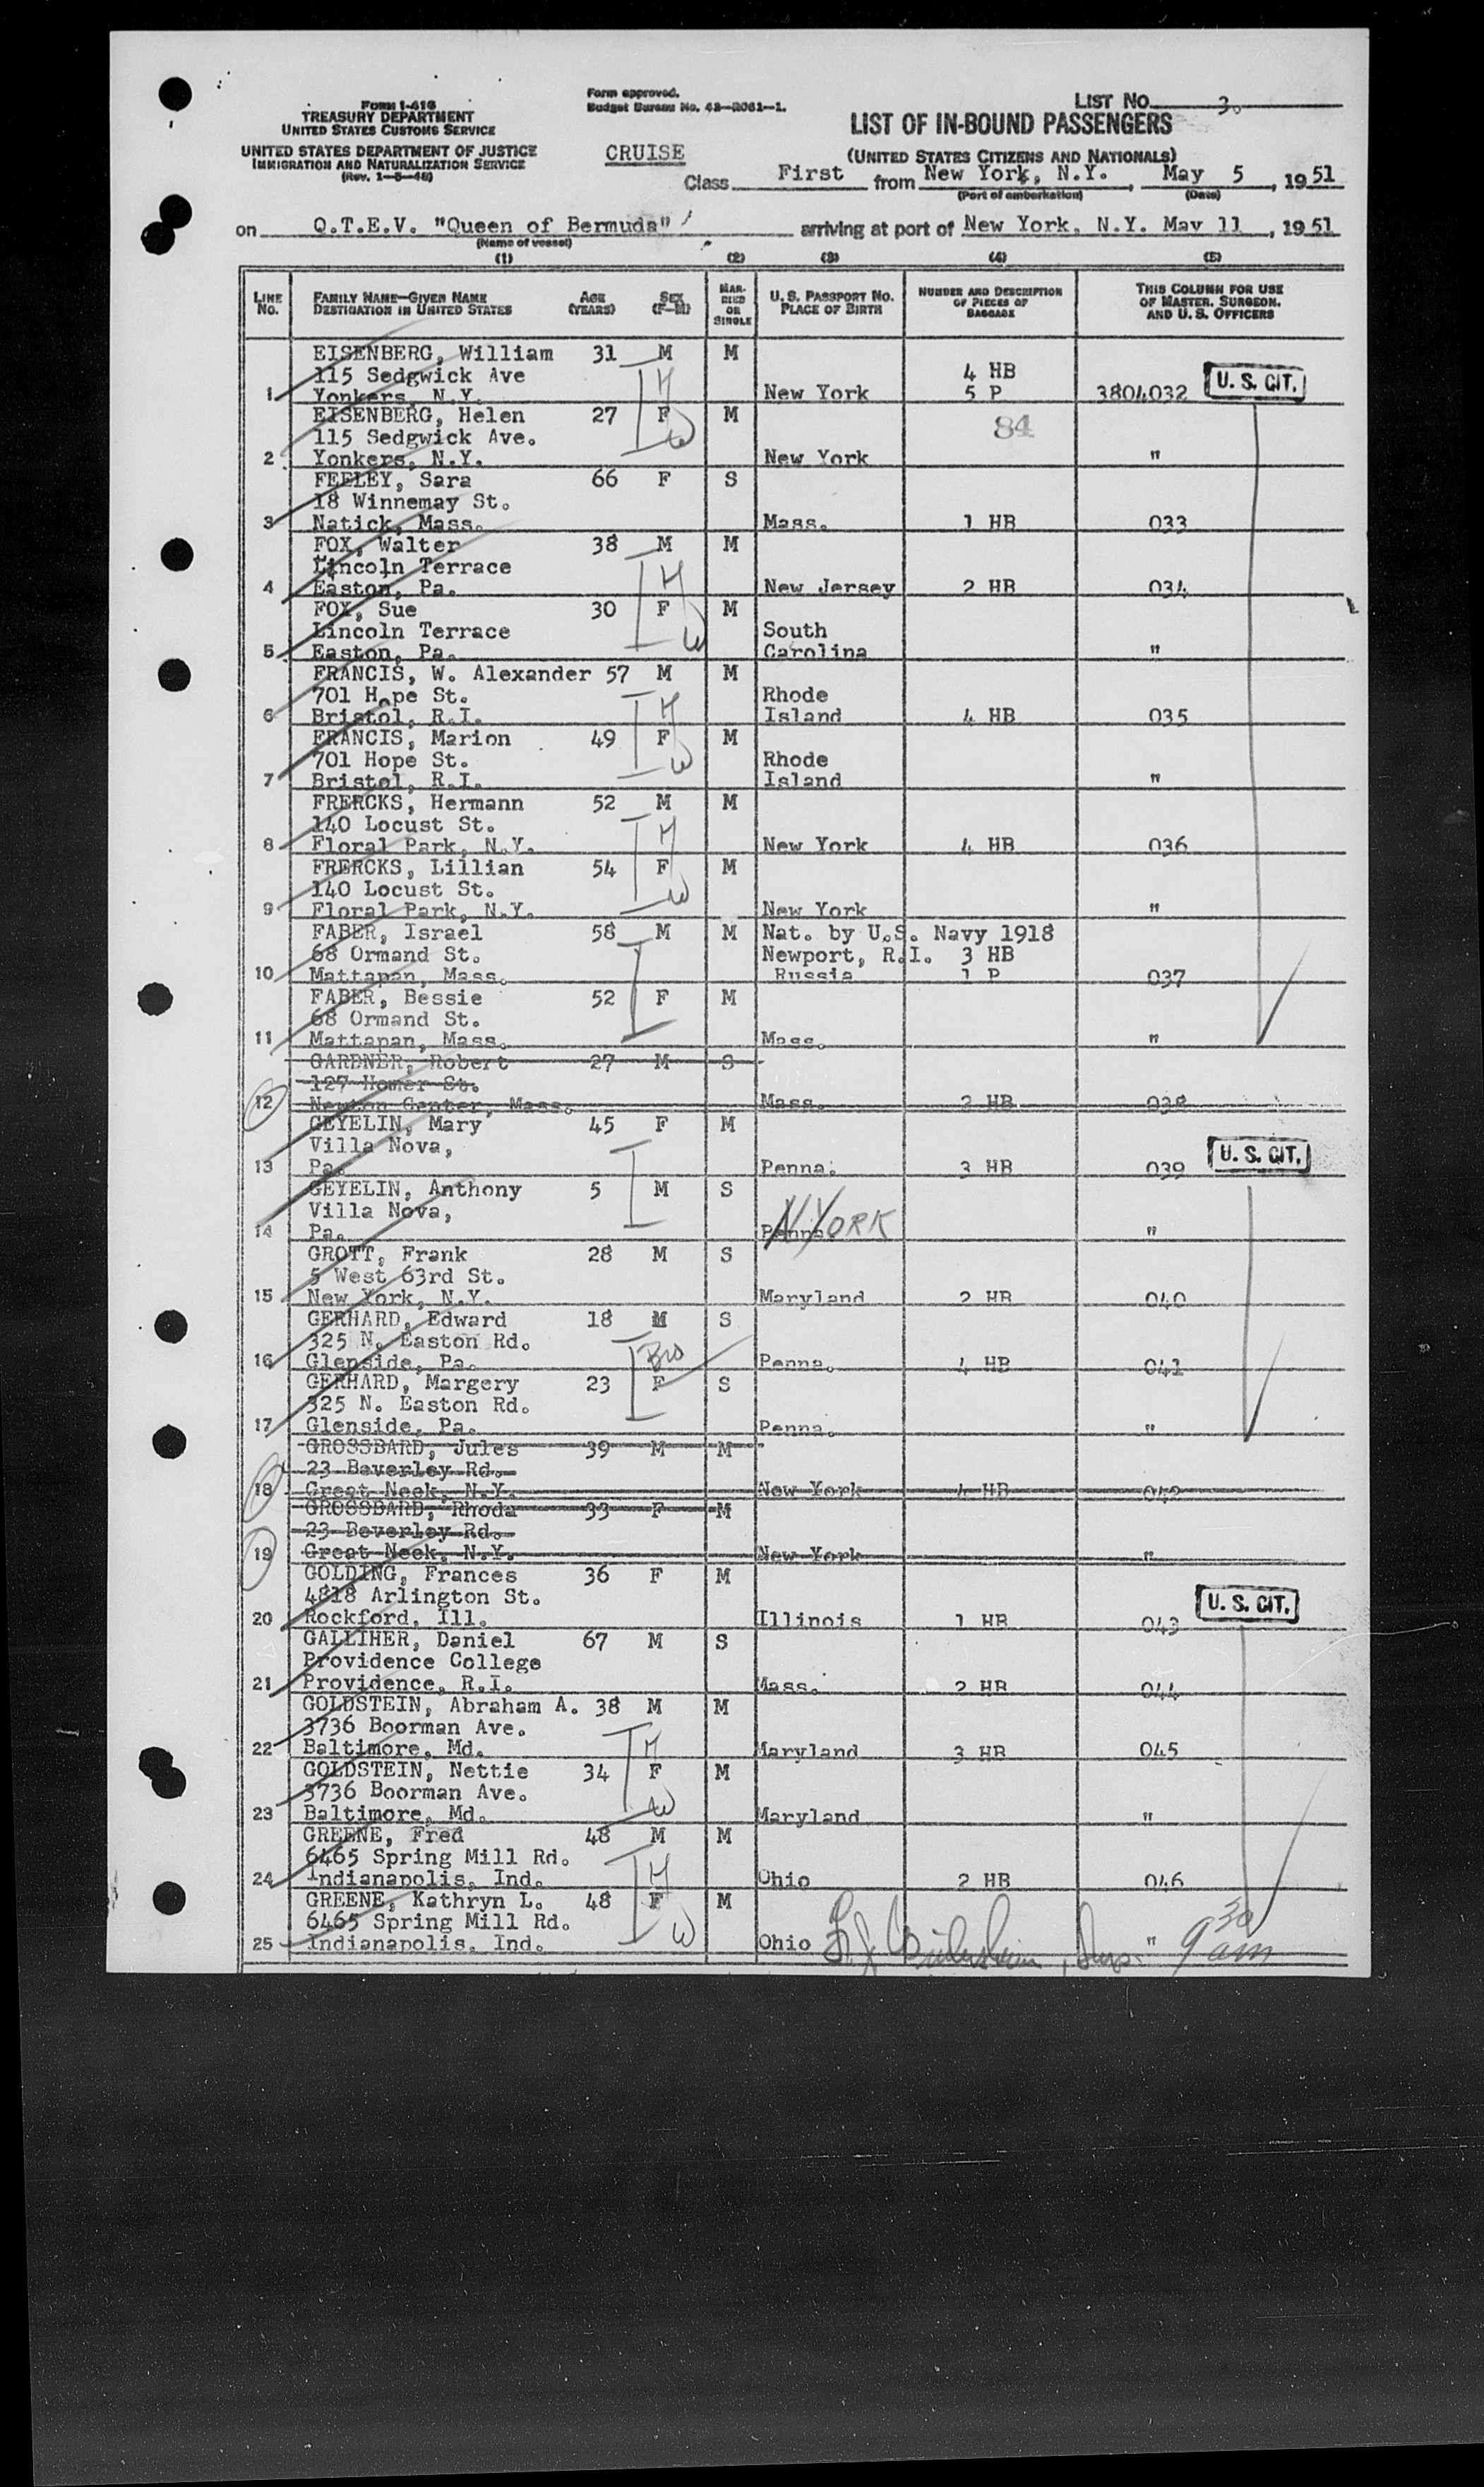 FORM I-418
TREASURY DEPARTMENT
UNITED STATES CUSTOMS SERVICE
UNITED STATES DEPARTMENT OF JUSTICE
IMMIGRATION AND NATURALIZATION SERVICE
Form approved.
Budget Bureau No. 43-R061-1.
CRUISE
LIST NO. 3.
LIST OF IN-BOUND PASSENGERS
(UNITED STATES CITIZENS AND NATIONALS)
Class First from New York, N.Y., May 5, 1951
(Port of embarkation) (Date)
on Q.T.E.V. "Queen of Bermuda" arriving at port of New York, N.Y. May 11, 1951
(Name of vessel)
(1) (2) (3) (4) (5)
LINE NO. FAMILY NAME—GIVEN NAME DESTINATION IN UNITED STATES AGE (YEARS) SEX (F—M) MARRIED OR SINGLE U. S. PASSPORT NO. PLACE OF BIRTH NUMBER AND DESCRIPTION OF PIECES OF BAGGAGE THIS COLUMN FOR USE OF MASTER, SURGEON, AND U. S. OFFICERS
EISENBERG, William 31 M M
115 Sedgwick Ave 4 HB U. S. CIT.
1 Yonkers, N.Y. H New York 5 P 3804032
EISENBERG, Helen 27 F M 84
115 Sedgwick Ave. W
2 Yonkers, N.Y. New York "
FEELEY, Sara 66 F S
18 Winnemay St.
3 Natick, Mass. Mass. 1 HB 033
FOX, Walter 38 M M
Lincoln Terrace H
4 Easton, Pa. New Jersey 2 HB 034
FOX, Sue 30 F M
Lincoln Terrace W South
5 Easton, Pa. Carolina "
FRANCIS, W. Alexander 57 M M
701 Hope St. H Rhode
6 Bristol, R.I. Island 4 HB 035
FRANCIS, Marion 49 F M
701 Hope St. W Rhode
7 Bristol, R.I. Island "
FRERCKS, Hermann 52 M M
140 Locust St. H
8 Floral Park, N.Y. New York 4 HB 036
FRERCKS, Lillian 54 F M
140 Locust St. W
9 Floral Park, N.Y. New York "
FABER, Israel 58 M M Nat. by U.S. Navy 1918
68 Ormand St. Newport, R.I. 3 HB
10 Mattapan, Mass. Russia 1 P 037
FABER, Bessie 52 F M
68 Ormand St.
11 Mattapan, Mass. Mass. "
GARDNER, Robert 27 M S
127 Homer St.
12 Newton Center, Mass. Mass. 2 HB 038
GEYELIN, Mary 45 F M
Villa Nova, U. S. CIT.
13 Pa. Penna. 3 HB 039
GEYELIN, Anthony 5 M S
Villa Nova, N YORK
14 Pa. Penna. "
GROTT, Frank 28 M S
5 West 63rd St.
15 New York, N.Y. Maryland 2 HB 040
GERHARD, Edward 18 M S
325 N. Easton Rd. Bro
16 Glenside, Pa. Penna. 4 HB 041
GERHARD, Margery 23 F S
325 N. Easton Rd.
17 Glenside, Pa. Penna. "
GROSSBARD, Jules 39 M M
23 Beverley Rd.
18 Great Neck, N.Y. New York 4 HB 042
GROSSBARD, Rhoda 33 F M
23 Beverley Rd.
19 Great Neck, N.Y. New York "
GOLDING, Frances 36 F M
4818 Arlington St. U. S. CIT.
20 Rockford, Ill. Illinois 1 HB 043
GALLIHER, Daniel 67 M S
Providence College
21 Providence, R.I. Mass. 2 HB 044
GOLDSTEIN, Abraham A. 38 M M
3736 Boorman Ave.
22 Baltimore, Md. H Maryland 3 HB 045
GOLDSTEIN, Nettie 34 F M
3736 Boorman Ave. W
23 Baltimore, Md. Maryland "
GREENE, Fred 48 M M
6465 Spring Mill Rd.
24 Indianapolis, Ind. H Ohio 2 HB 046
GREENE, Kathryn L. 48 F M
6465 Spring Mill Rd. W 9 30 am
25 Indianapolis, Ind. Ohio "